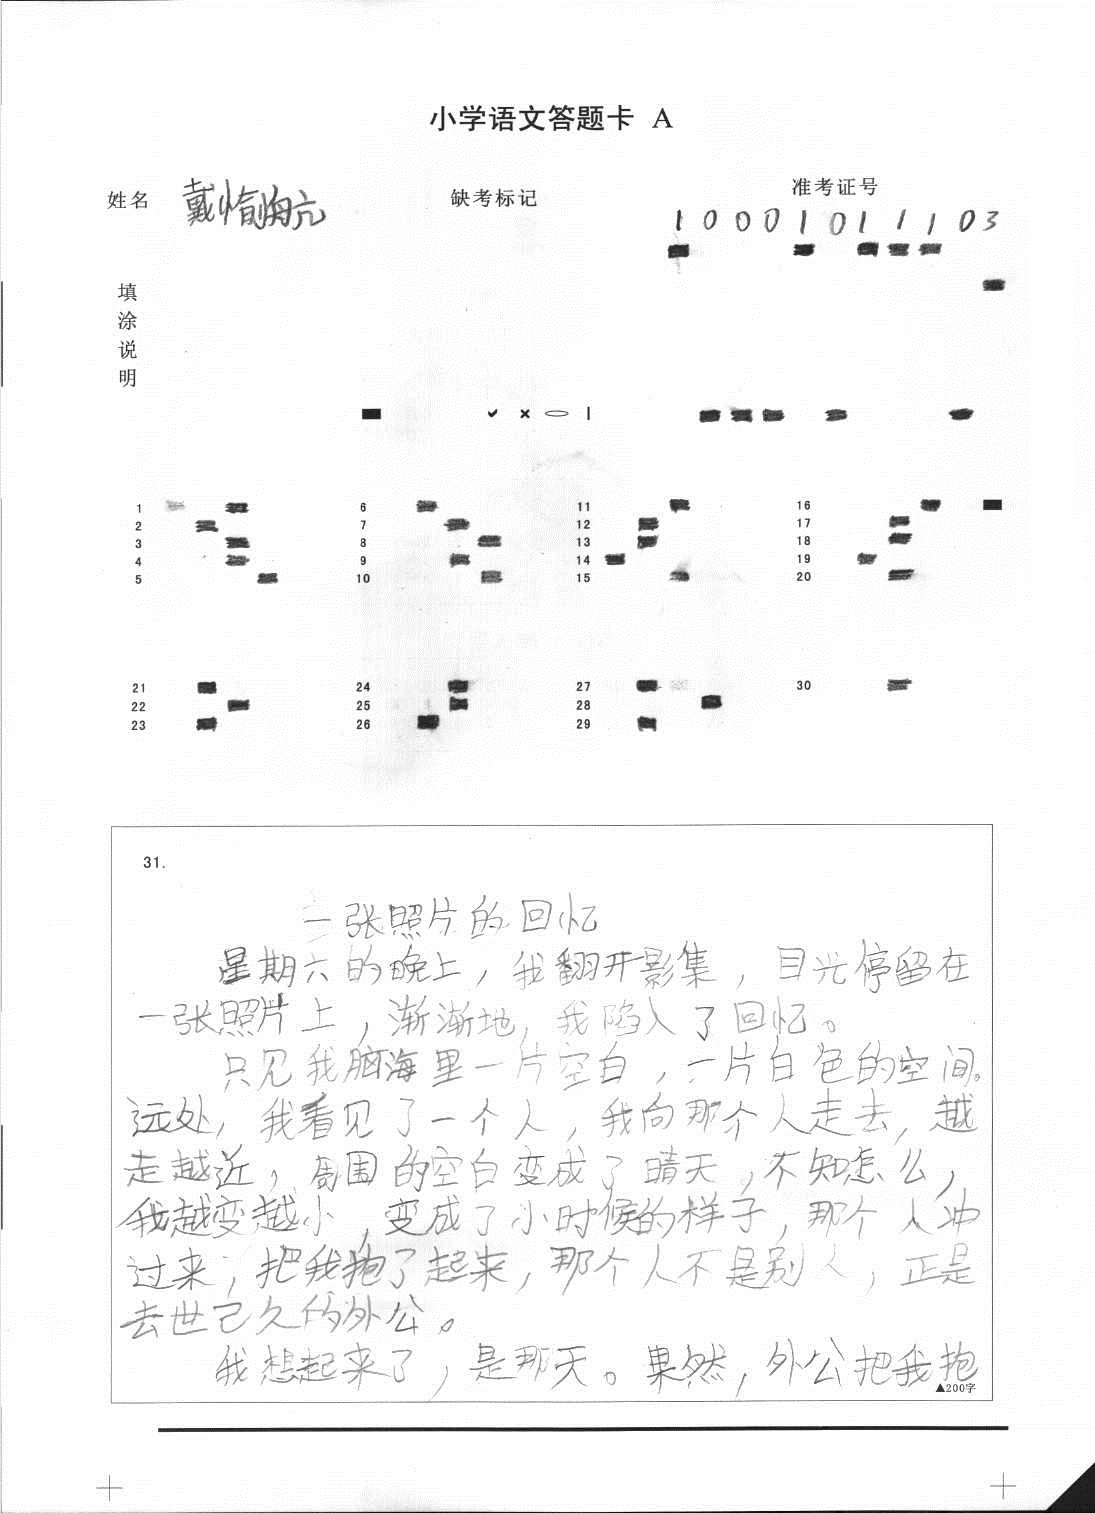 小学语文答题卡 A
姓名 戴 缺考标记 准考证号
1 0 0 0 1 0 1 1 1 0 3
填
涂
说
明
1 6 11 16
2 7 12 17
3 8 13 18
4 9 14 19
5 10 15 20
21 24 27 30
22 25 28
23 26 29
31.
一张照片的回忆
星期六的晚上，我翻开影集，目光停留在
一张照片上，渐渐地，我陷入了回忆。
只见我脑海里一片空白，一片白色的空间。
远处，我看见了一个人，我向那个人走去，越
走越近，周围的空白变成了晴天，不知怎么，
我越变越小，变成了小时候的样子，那个人冲
过来，把我抱了起来，那个人不是别人，正是
去世已久的外公。
我想起来了，是那天。果然，外公把我抱
▲200字